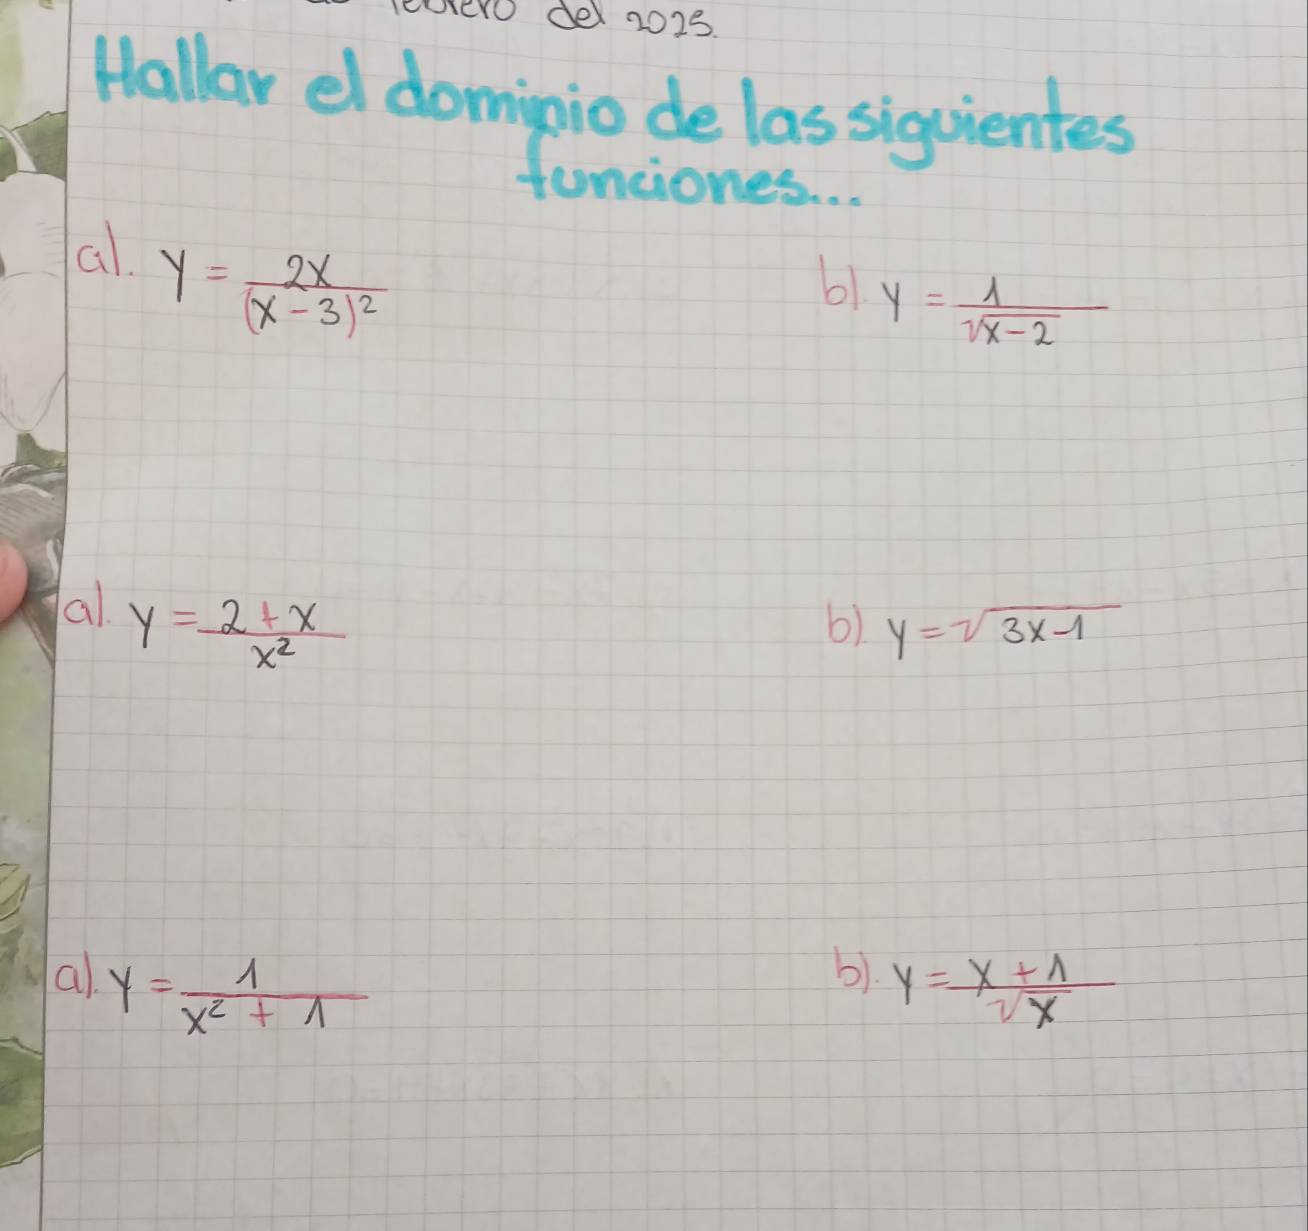 del 2025.
Hallar el dominio de las siguientes
funciones...
a). y = 2x / (x - 3)²
b). y = 1 / √x - 2
a). y = 2 + x / x²
b). y = √3x - 1
a). y = 1 / x² + 1
b). y = x + 1 / √x